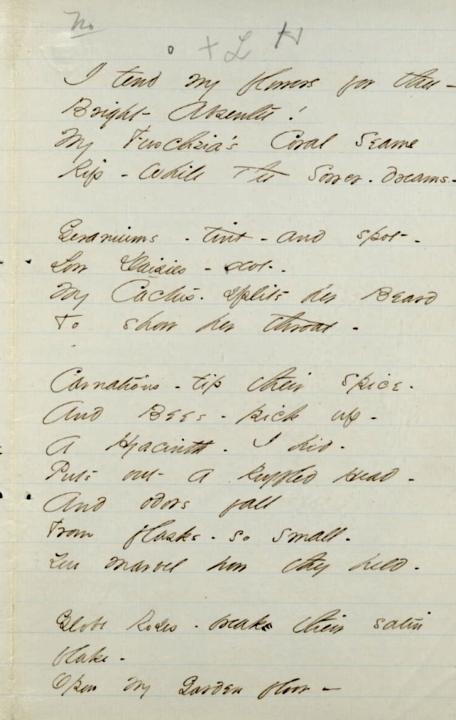 No
o + L H
I tend my flowers for thee -
Bright - Absentee!
My Fuschzia's Coral Seams
Rip - while the Sower - dreams -
Geraniums - tint - and spot -
Low Daisies - dot -
My Cactus - splits her Beard
To show her throat -
Carnations - tip their spice -
And Bees - pick up -
A Hyacinth - I hid -
Puts out a Ruffled Head -
And odors fall
From flasks - so small -
You marvel how they held -
Globe Roses - break their satin
flake -
Open my Garden floor -